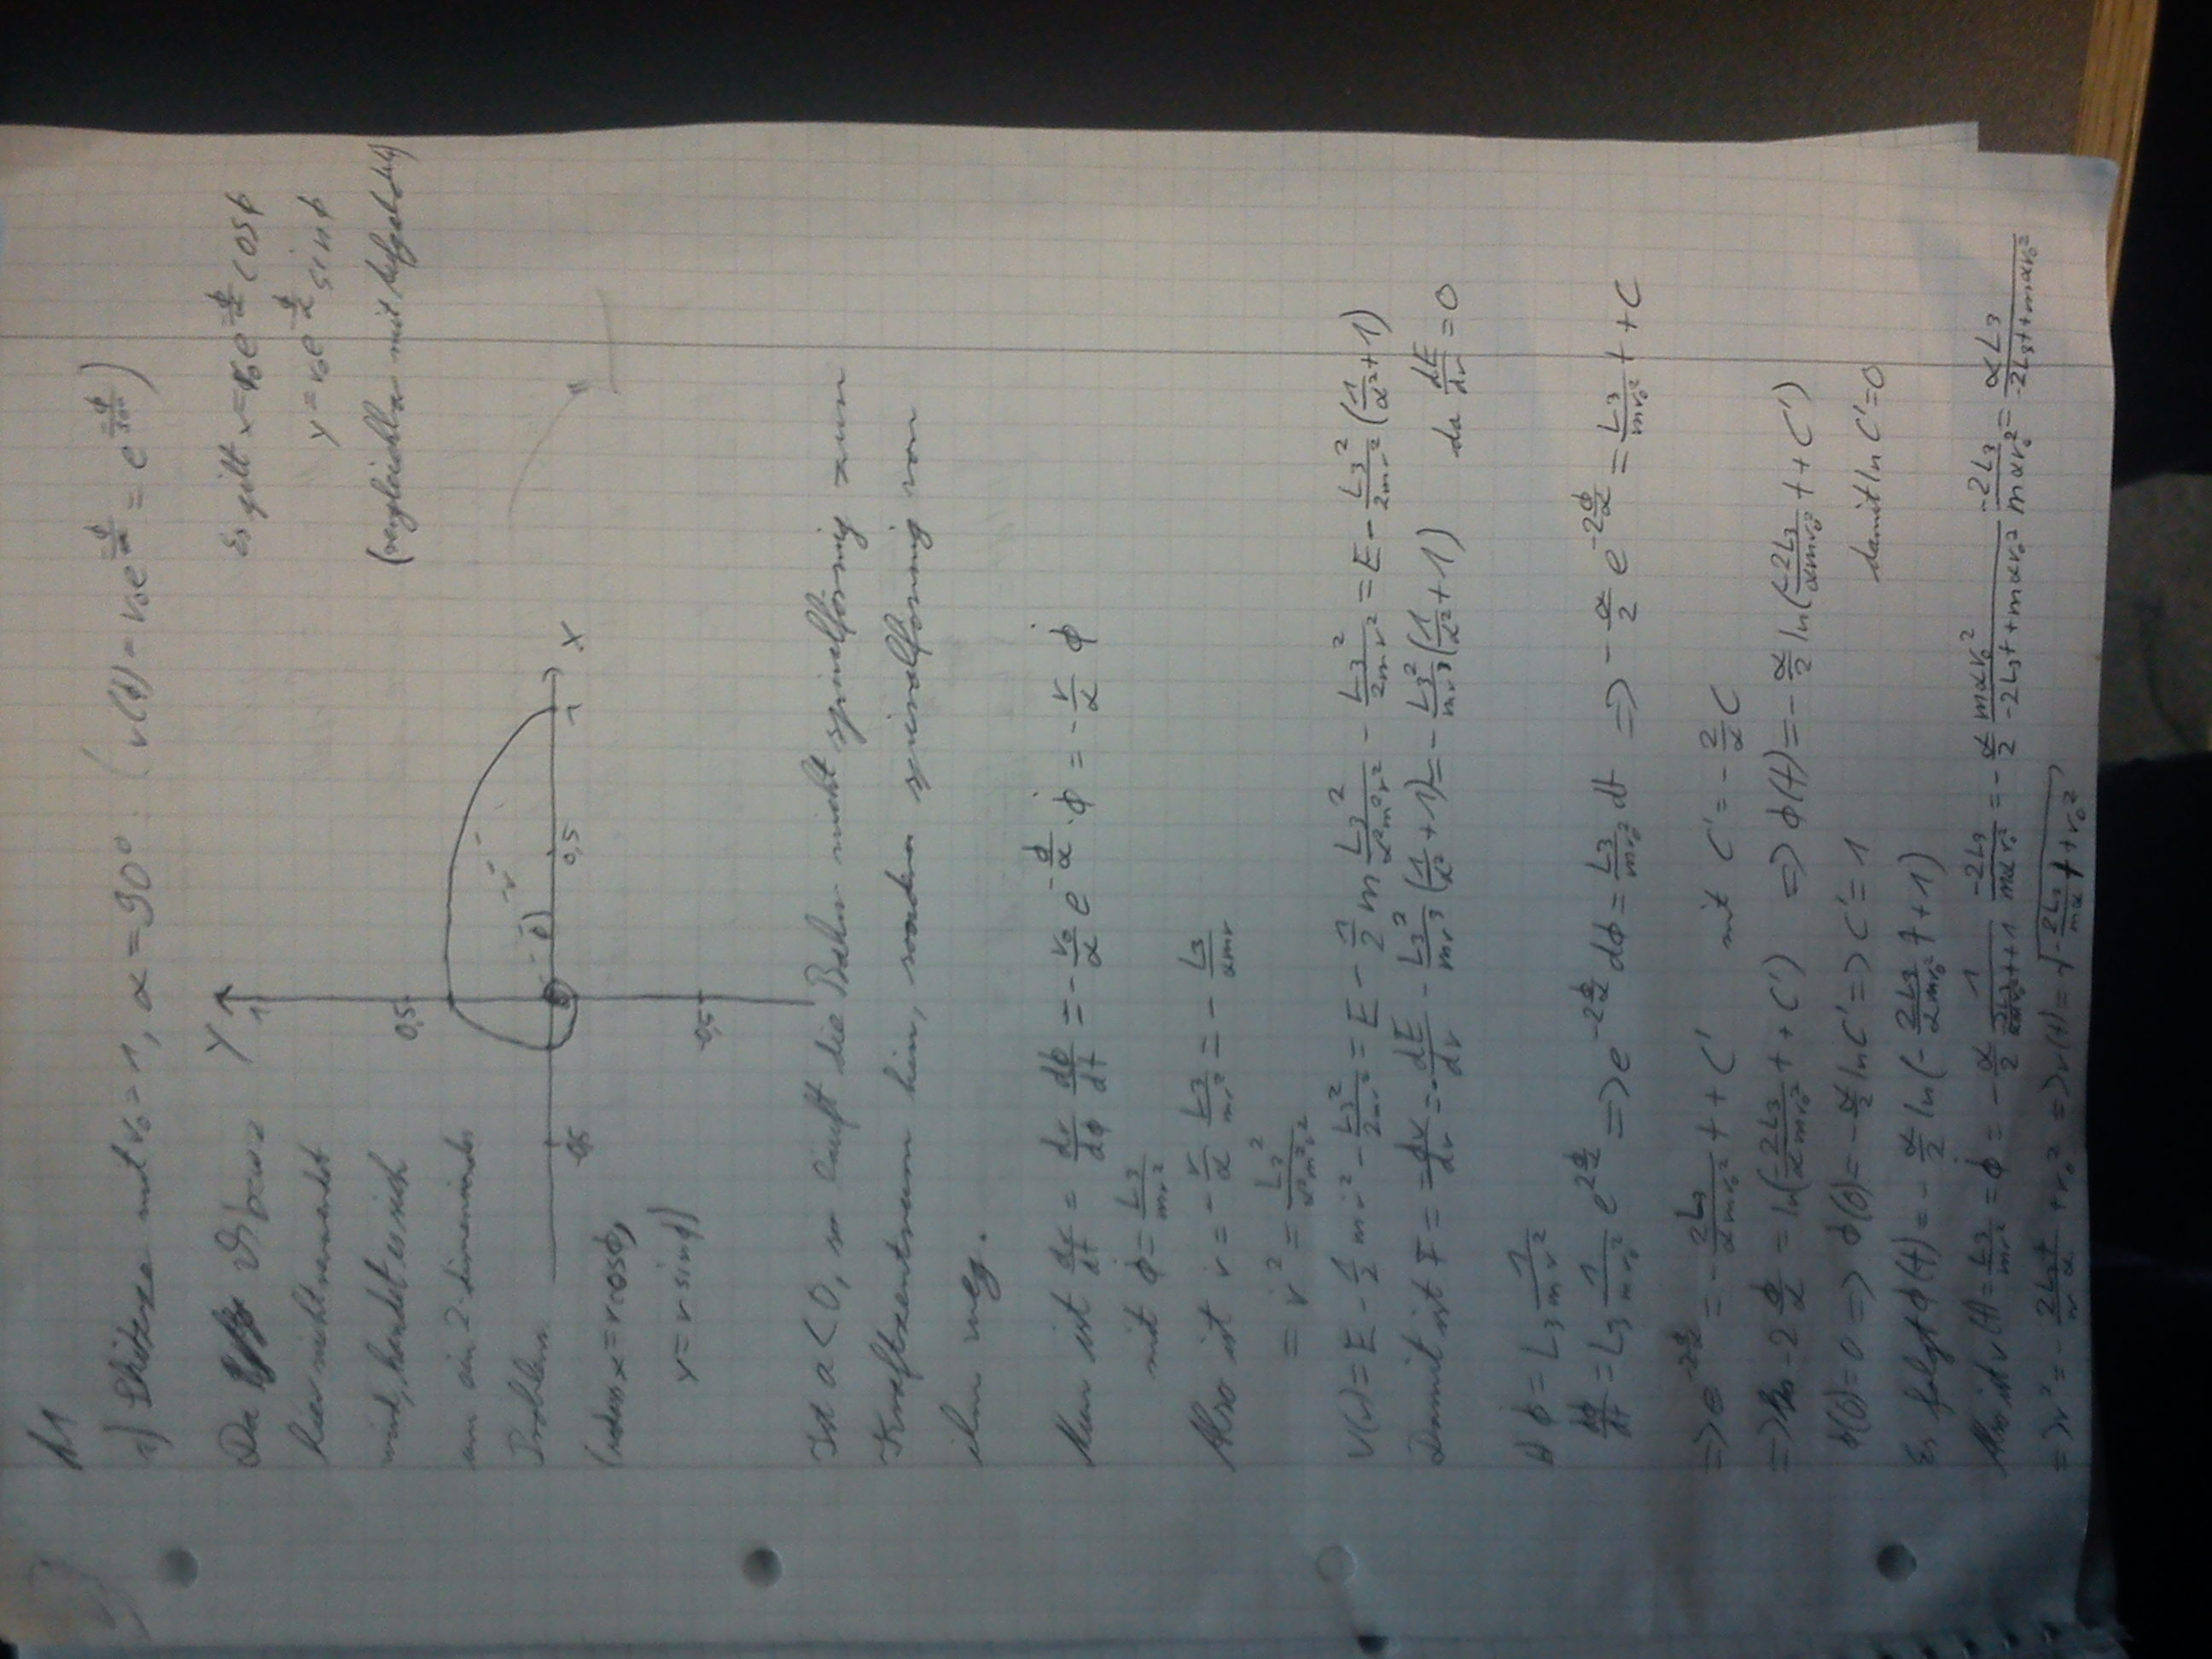 A1
a) Skizze mit r₀=1, α=90°: (r(ϕ)=r₀e^(-ϕ/α)=e^(-ϕ/90°))
Da ϑ bzw. z
hier nicht verwendet
wird, handelt es sich
um ein 2-dimensionales
Problem.
(indem x=r cosϕ,
y=r sinϕ)
Y
1
0,5
-0,5
-0,5
0,5
1
X
r
ϕ
Es gilt x=r₀e^(-ϕ/α) cosϕ
y=r₀e^(-ϕ/α) sinϕ
(vergleichbar mit Aufgabe)
Ist α<0, so läuft die Bahn nicht spiralförmig zum
Kraftzentrum hin, sondern spiralförmig von
ihm weg.
Nun ist dr/dt = dr/dϕ dϕ/dt = -r₀/α e^(-ϕ/α)·ϕ̇ = -r/α ϕ̇
mit ϕ̇ = L₃/mr²
Also ist ṙ = -r/α L₃/mr² = -L₃/αmr
⇒ ṙ² = L₃²/α²m²r²
V(r)=E-1/2 mṙ²-L₃²/2mr² = E-1/2 m L₃²/α²m²r² - L₃²/2mr² = E-L₃²/2mr² (1/α²+1)
Damit ist F=-dV/dr=-dE/dr - L₃²/mr³ (1/α²+1)=-L₃²/mr³ (1/α²+1) da dE/dr=0
b) ϕ̇ = L₃ 1/mr²
dϕ/dt = L₃ 1/mr₀² e^(2ϕ/α) ⇒ e^(-2ϕ/α) dϕ = L₃/mr₀² dt ⇒ -α/2 e^(-2ϕ/α) = L₃/mr₀² t+C
⇒ e^(-2ϕ/α) = -2L₃/αmr₀² t+C' mit C'=-2/α C
⇒ -2ϕ/α = ln(-2L₃/αmr₀² t+C') ⇒ ϕ(t)=-α/2 ln(-2L₃/αmr₀² t+C')
ϕ(0)=0 ⇒ ϕ(0)=-α/2 ln C' ⇒ C'=1 damit ln C'=0
Es folgt ϕ(t)=-α/2 ln(-2L₃/αmr₀² t+1)
Also ist r(t)= L₃/mr² = ϕ̇ = -α/2 1/(-2L₃/αmr₀² t+1) -2L₃/mαr₀² = -α/2 mαr₀²/(-2L₃t+mαr₀²) -2L₃/mαr₀² = αL₃/(-2L₃t+mαr₀²)
⇒ r²=-2L₃t/mα + r₀² ⇒ r(t)=√(-2L₃/mα t+r₀²)